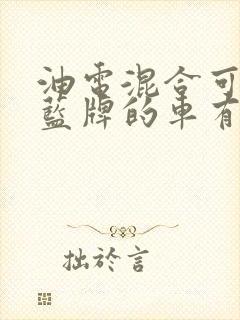 油電混合可
藍牌的車有
拙於言